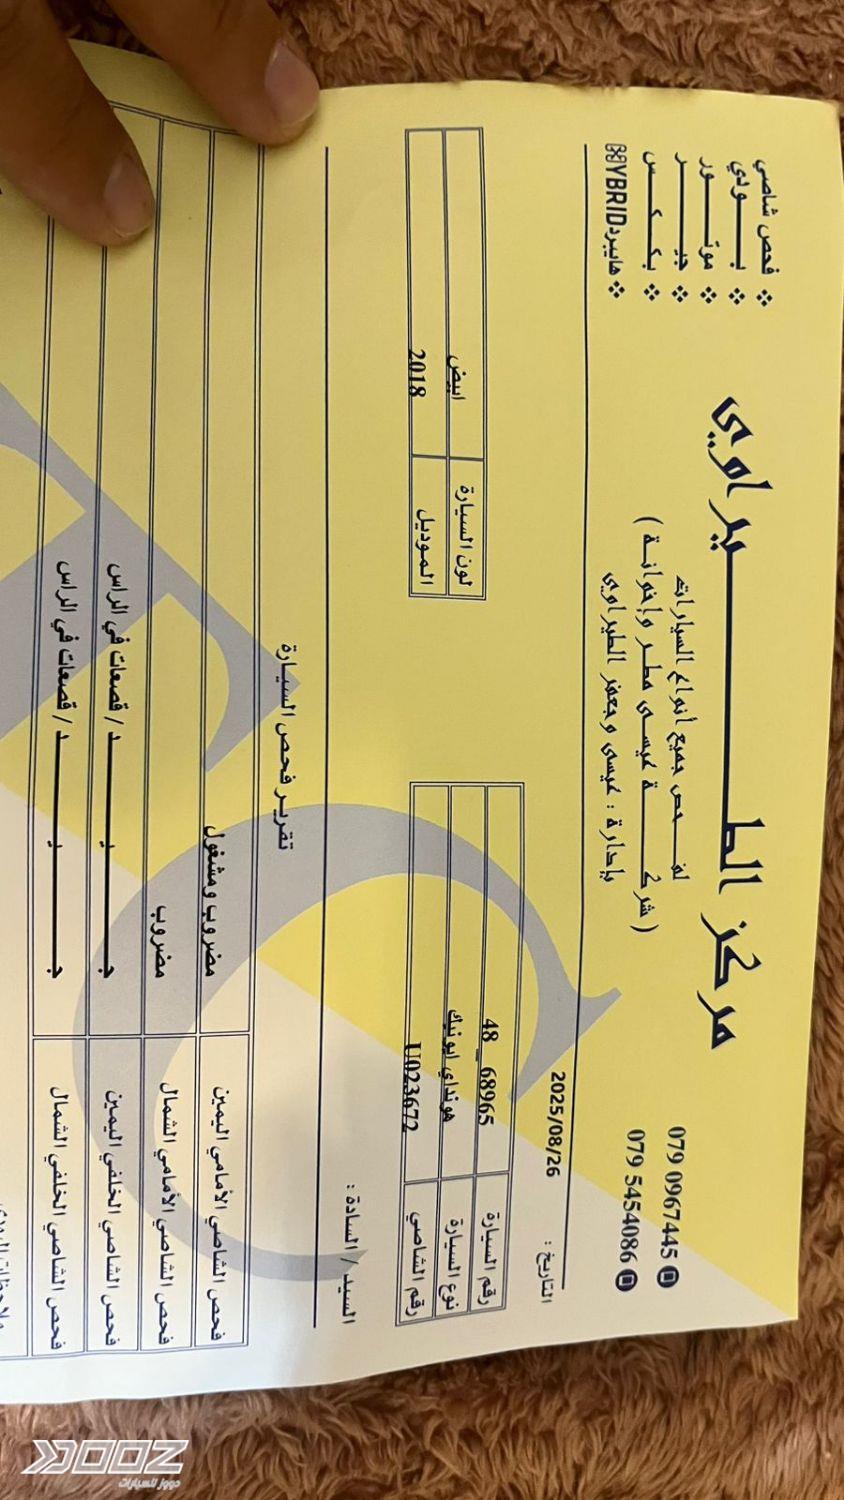 مركز الطيراوي
لفحص جميع أنواع السيارات
(شركة عيسى مطر وإخوانة)
بإدارة : عيسى وجعفر الطيراوي
079 0967445
079 5454086
❖ فحص شاصي
❖ بودي
❖ موتور
❖ جير
❖ بكس
❖ هايبرد HYBRID
التاريخ : 2025/08/26
رقم السيارة 48 _ 68965
نوع السيارة هونداي ايونيك
رقم الشاصي U023672
لون السيارة ابيض
الموديل 2018
السيد / السادة :
تقرير فحص السيارة
فحص الشاصي الأمامي اليمين مضروب ومشغول
فحص الشاصي الأمامي الشمال مضروب
فحص الشاصي الخلفي اليمين جيد / قصعات في الراس
فحص الشاصي الخلفي الشمال جيد / قصعات في الراس
DOOZ
دووز للسيارات